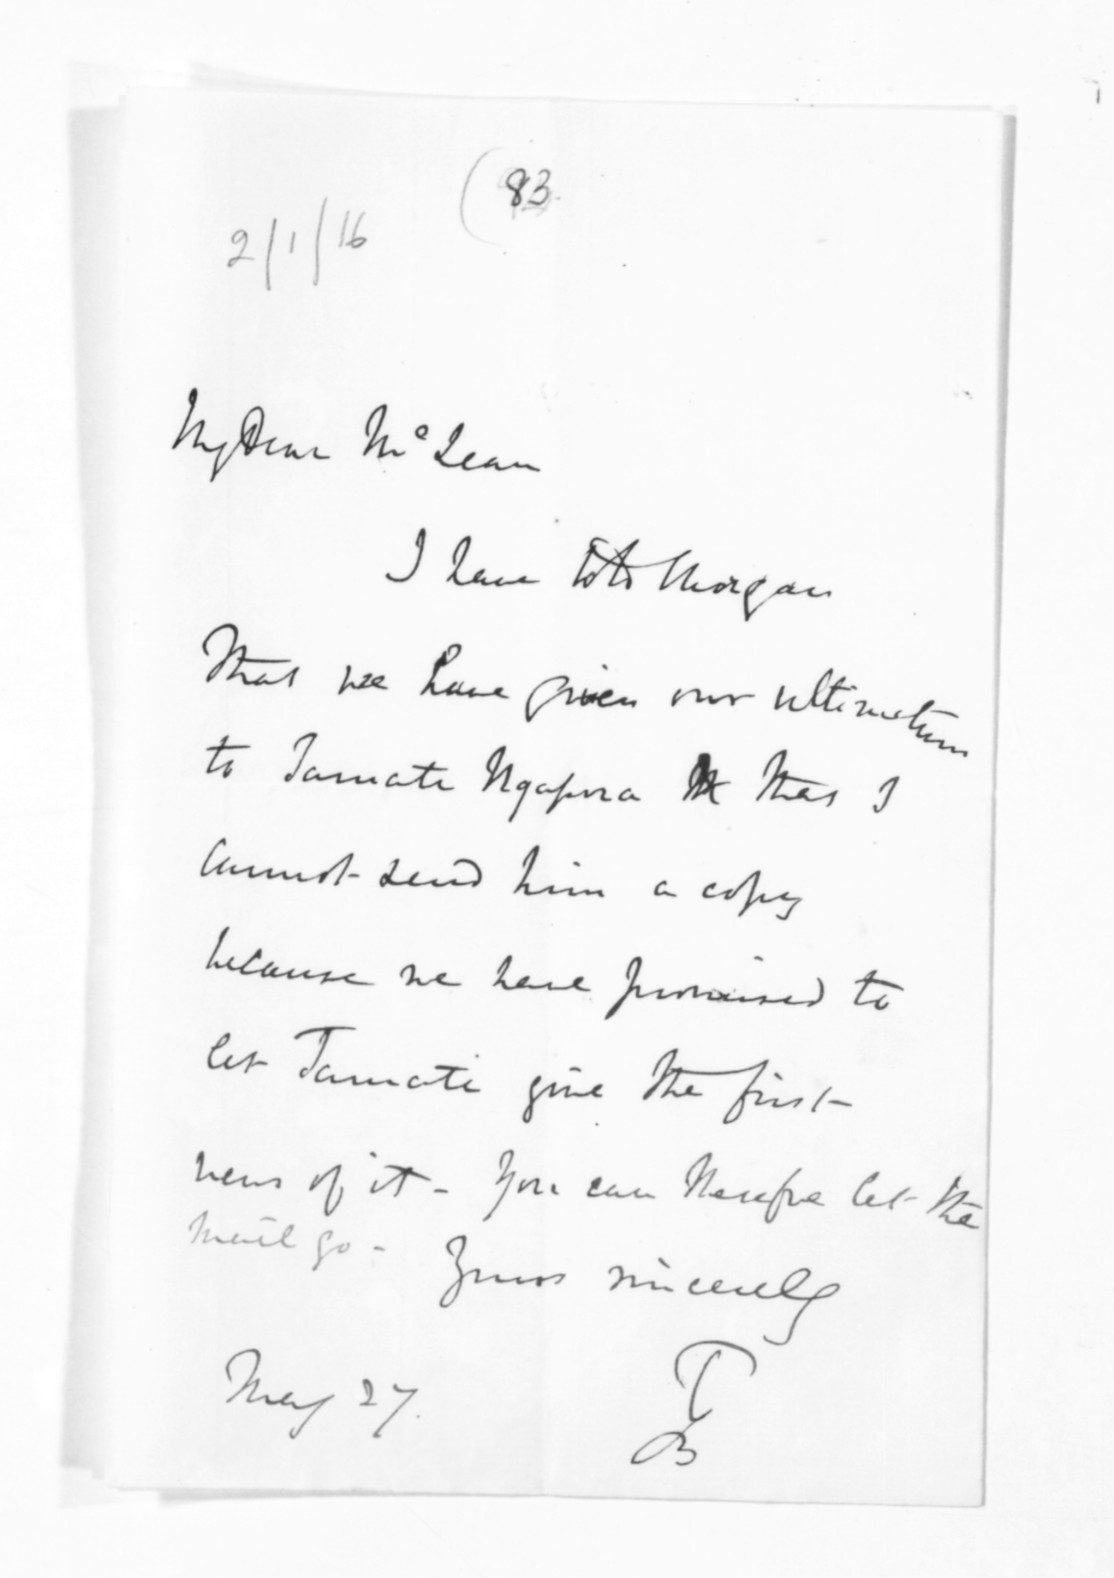 (83
2/1/16
My Dear McLean
I have told Morgan
that we have given our ultimatum
to Tamati Ngapora & that I
cannot send him a copy
because we have promised to
let Tamati give the first
news of it - You can therefore let the
mail go -
Yours sincerely
TGB
May 27.